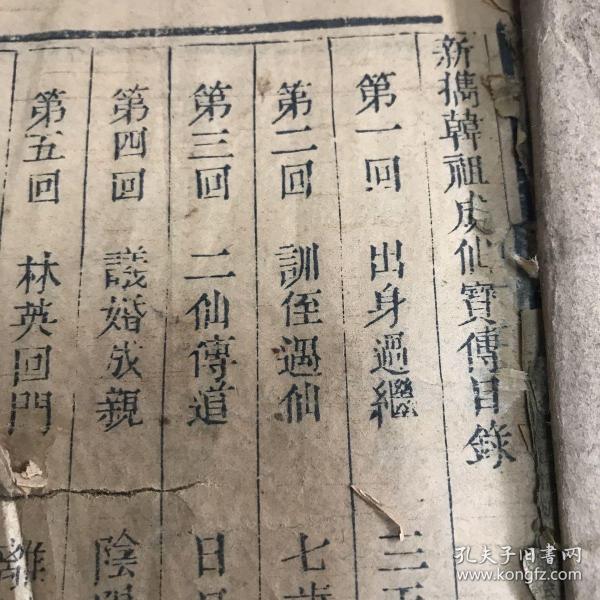 新携韓祖成仙寶傳目錄
第一回 出身過繼 三
第二回 訓侄遇仙 七歲
第三回 二仙傳道 日月
第四回 議婚成親 陰陽
第五回 林英回門 雖
孔夫子旧书网
www.kongfz.com